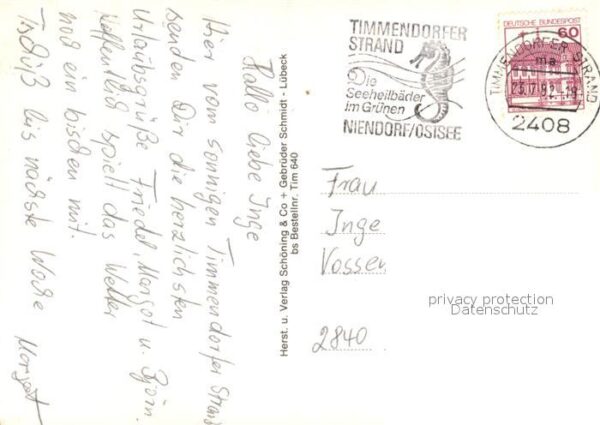 Hallo liebe Inge
Hier vom sonnigen Timmendorfer Strand
senden Dir die herzlichsten
Urlaubsgrüße Friedel, Margot u. Björn.
Hoffentlich spielt das Wetter
noch ein bischen mit.
Tschüß bis nächste Woche
Margot
Herst. u. Verlag Schöning & Co + Gebrüder Schmidt - Lübeck
bs Bestellnr. Tim 640
TIMMENDORFER
STRAND
Die
Seeheilbäder
im Grünen
NIENDORF/OSTSEE
DEUTSCHE BUNDESPOST
60
TIMMENDORFER STRAND
ma
2408
Frau
Inge
Vossen
2840
privacy protection
Datenschutz